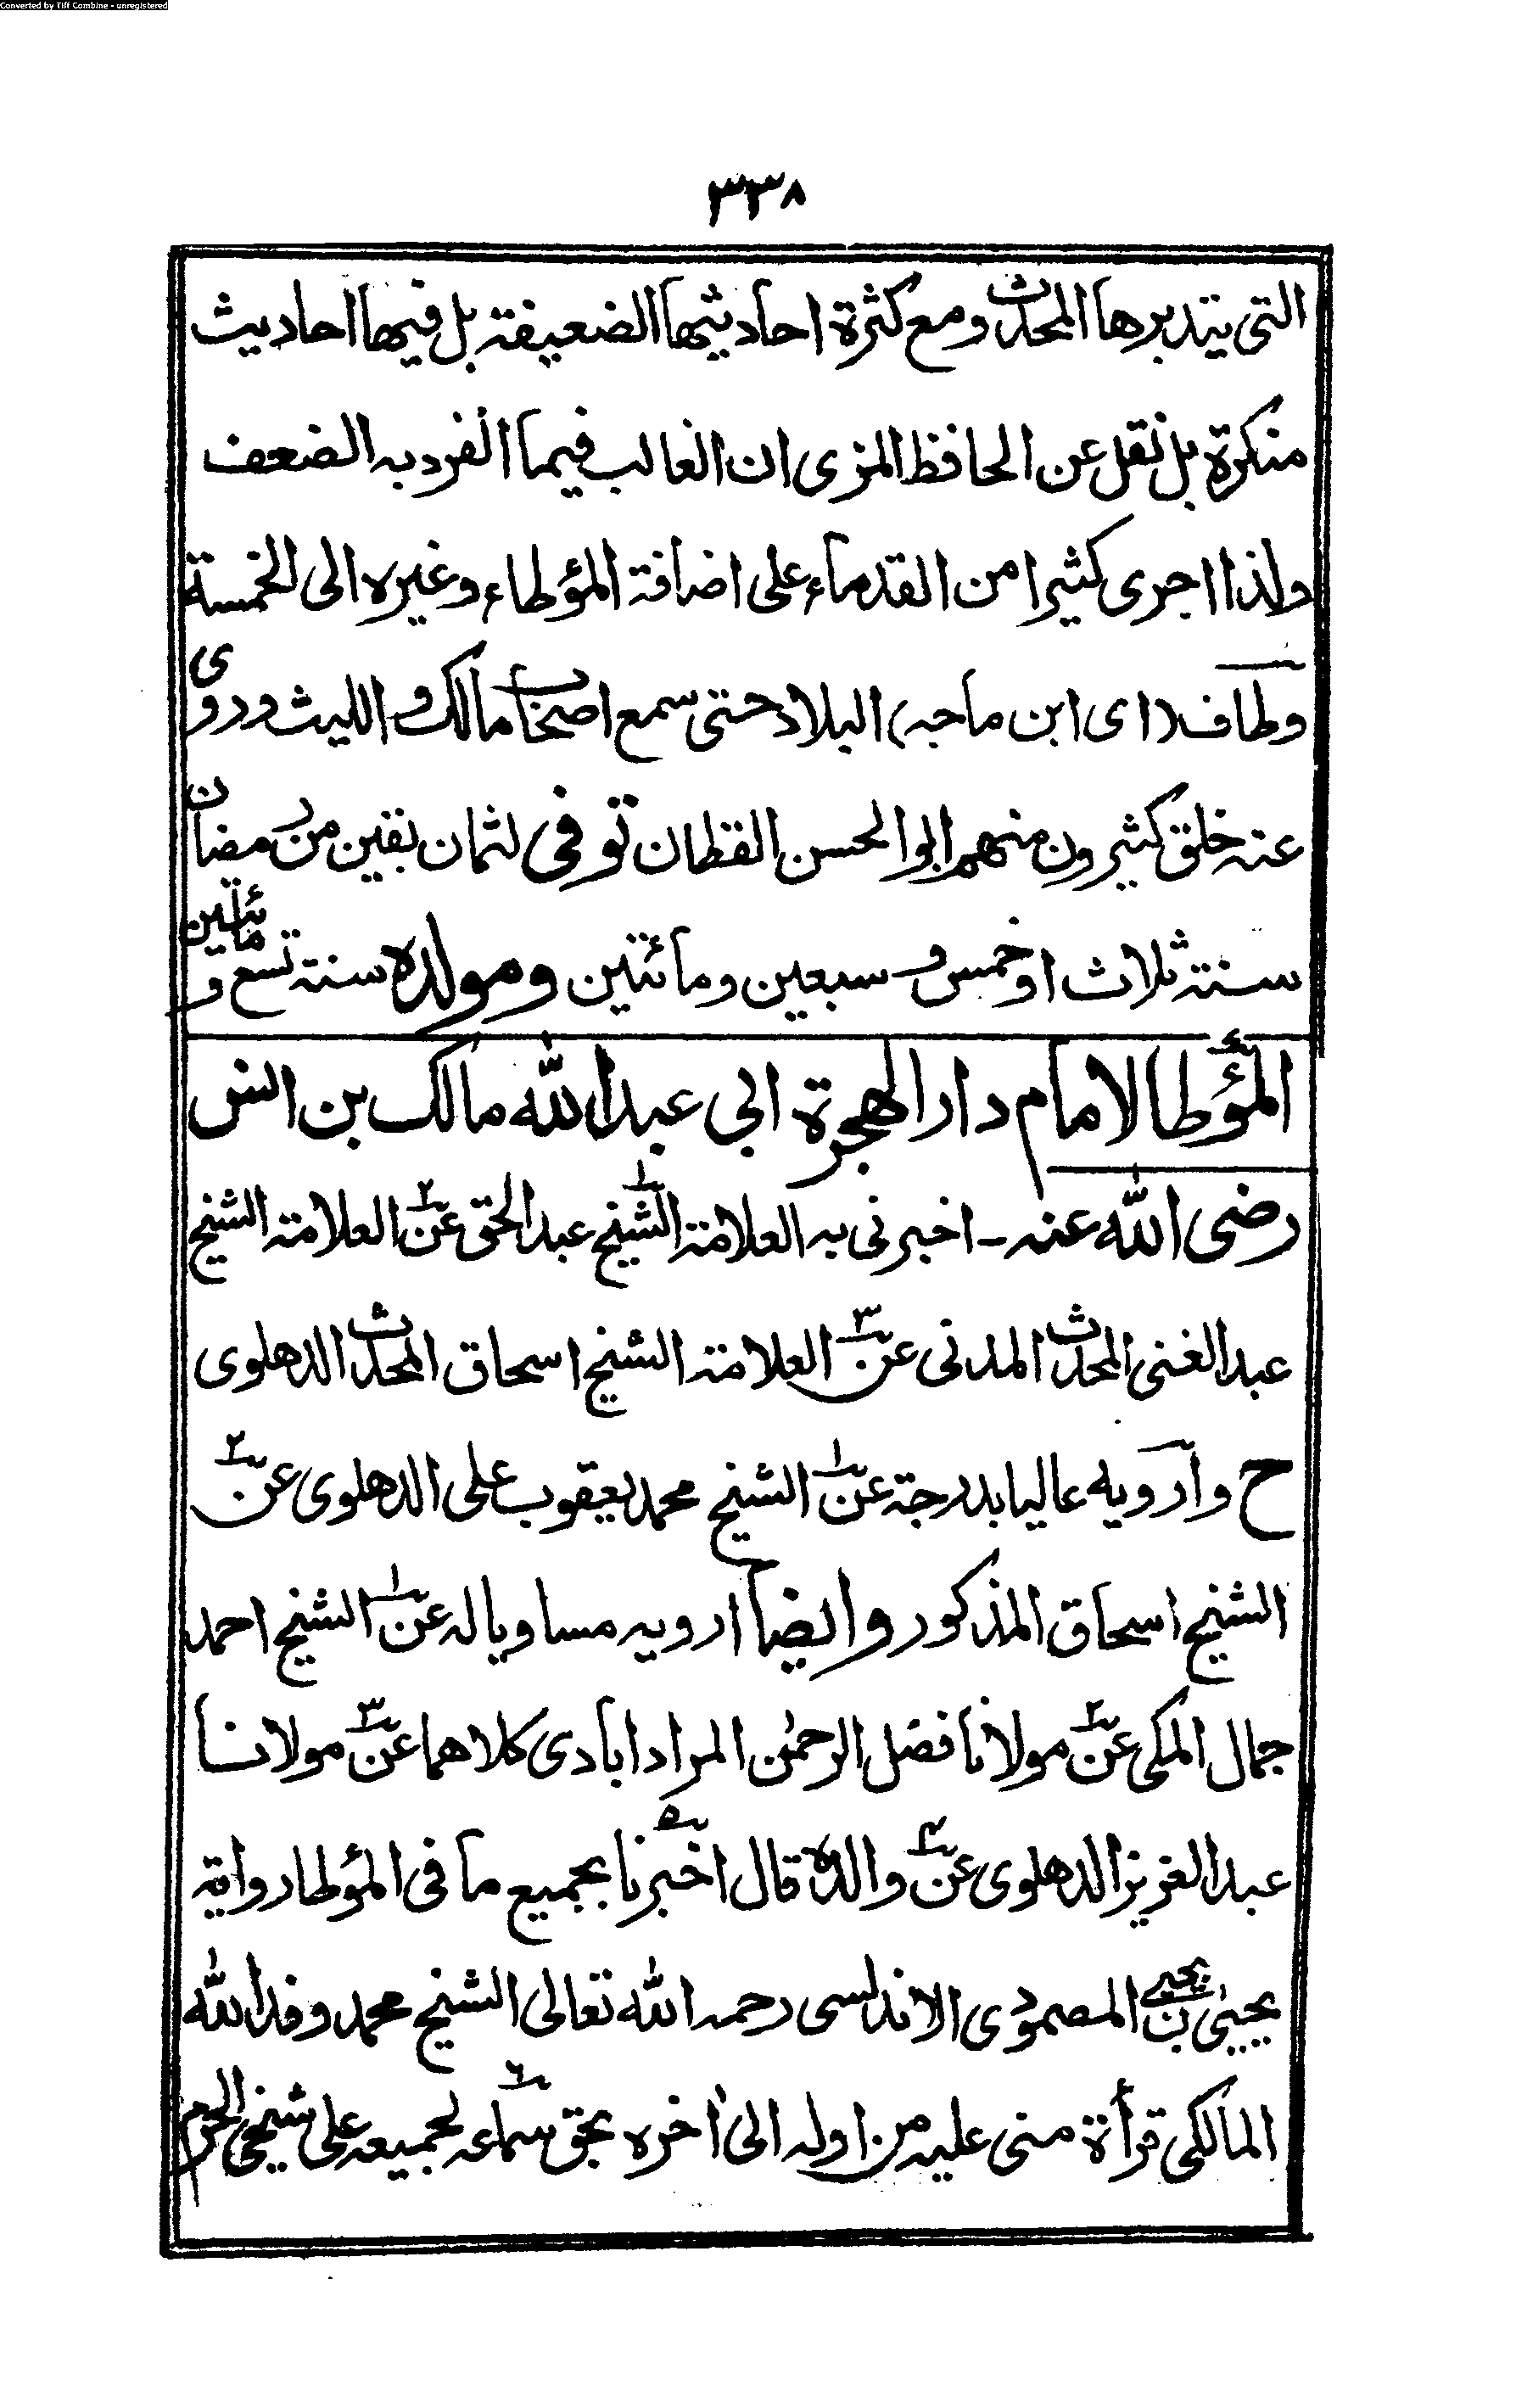 Converted by Tiff Combine - unregistered
٣٣٨
التی یتدبرها المحدث ومع کثرة احادیثها الضعیفة بل فیها احادیث
منکرة بل نقل عن الحافظ المزی ان الغالب فیما انفرد به الضعف
ولذا اجری کثیرا من القدماء علی اضافة المؤطاء وغیره الی الخمسة
وطاف (ای ابن ماجه) البلاد حتی سمع اصحاب مالک و اللیث وروی
عنه خلق کثیرون منهم ابوالحسن القطان توفی لثمان بقین من رمضان
سنة ثلاث او خمس و سبعین ومائتین ومولده سنة تسع و مائتین
المؤطا لامام دار الهجرة ابی عبدالله مالک بن انس
رضی الله عنه ـ اخبرنی به العلامة الشیخ١ عبدالحق عن٢ العلامة الشیخ
عبدالغنی المحدث المدنی عن٣ العلامة الشیخ اسحاق المحدث الدهلوی
ح وارویه عالیا بدرجة عن١ الشیخ محمد یعقوب علی الدهلوی عن٢
الشیخ اسحاق المذکور وایضا ارویه مساویا له عن١ الشیخ احمد
جمال المکی عن٢ مولانا فضل الرحمٰن المراد ابادی کلاهما عن٣ مولانا
عبدالعزیز الدهلوی عن٤ والده قال اخبرنا٥ بجمیع ما فی المؤطا روایة
یحییٰ بن یحیی المصمودی الاندلسی رحمه الله تعالی الشیخ محمد وفدالله
المالکی قرأة منی علیه من اوله الیٰ اٰخره بحق سماعه٦ لجمیعه علی شیخی الحرم